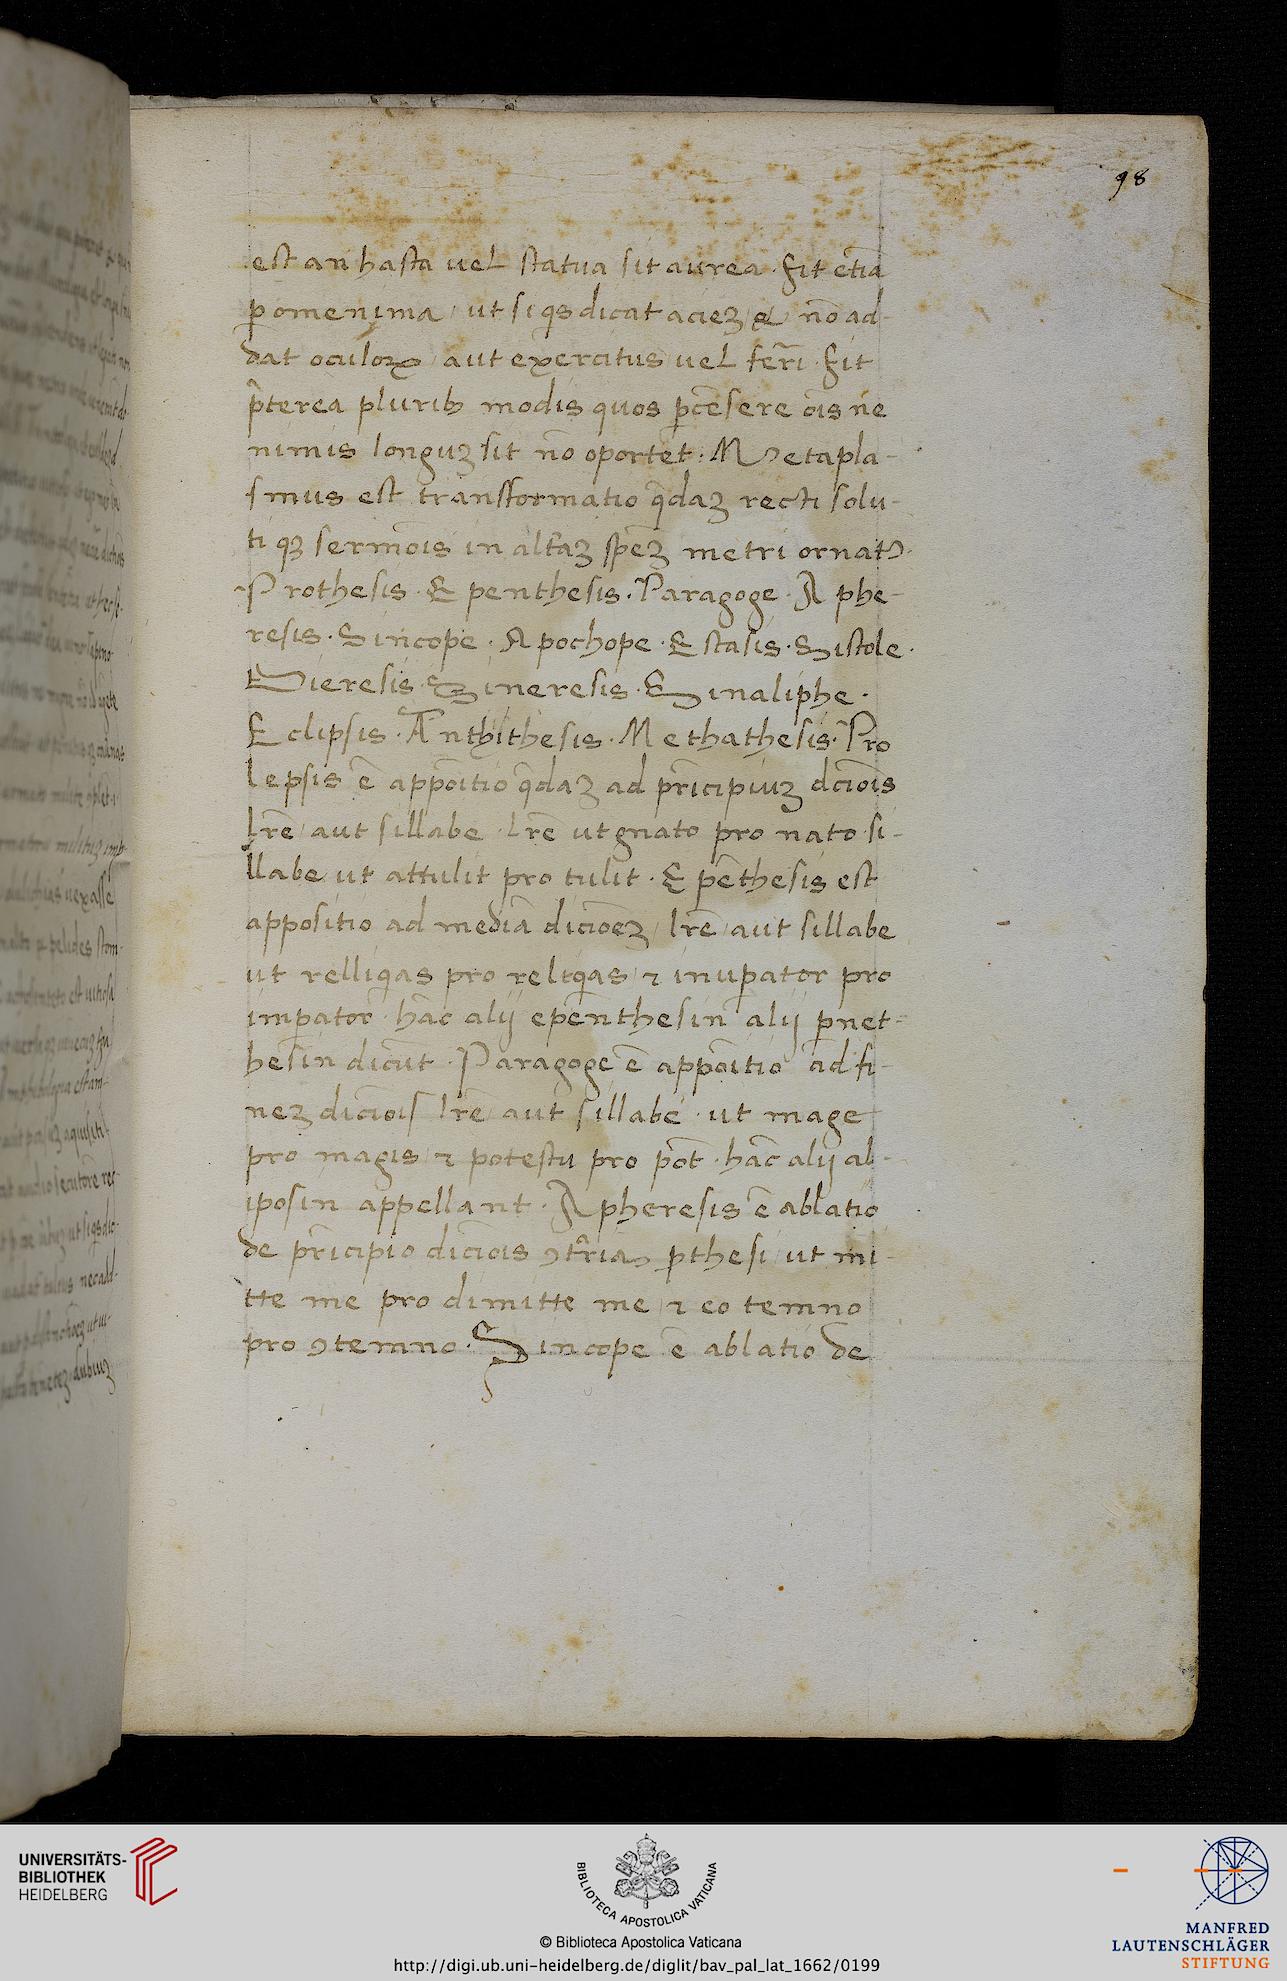 98
est an hasta uel statua sit aurea. fit etiã
p omenima, ut si q̃s dicat aciez, & nõ ad-
dat oculoꝝ, aut exercitus, uel ferri. fit
p̃terea pluribꝫ modis quos p̃cẽsere õis ne
nimis longuꝫ sit nõ oportet. Metapla-
smus est transformatio q̃daꝫ recti solu-
ti qꝫ sermõis in aliaꝫ sp̃eꝫ metri ornatꝰ.
Prothesis. Epenthesis. Paragoge. Aphe-
resis. Sincope. Apochope. Estasis. Sistole.
Dieresis. Sineresis. Sinaliphe.
Eclipsis. Anthithesis. Methathesis. Pro
lepsis ẽ appõitio q̃daꝫ ad principiuꝫ dciõis
lrẽ, aut sillabe. lrẽ ut gnato pro nato. si-
llabe, ut attulit pro tulit. Epẽthesis est
appositio ad mediã diciõeꝫ, lrẽ, aut sillabe
ut relliq̃as pro reliq̃as, ⁊ inuꝑator pro
imꝑator. hãc alij epẽnthesin alij ꝑnet-
hesin dicũt. Paragoge ẽ appõitio ad fi-
neꝫ diciõis lrẽ, aut sillabe. ut mage
pro magis, ⁊ potestu pro põt. hãc alij al-
iposin appellant. Apheresis ẽ ablatio
de principio diciõis ꝯtr̃ia, ꝓthesi, ut mi-
tte me pro dimitte me, ⁊ eo temno
pro ꝯtemno. Sincope ẽ ablatio de
UNIVERSITÄTS-
BIBLIOTHEK
HEIDELBERG
BIBLIOTECA APOSTOLICA VATICANA
© Biblioteca Apostolica Vaticana
http://digi.ub.uni-heidelberg.de/diglit/bav_pal_lat_1662/0199
MANFRED
LAUTENSCHLÄGER
STIFTUNG